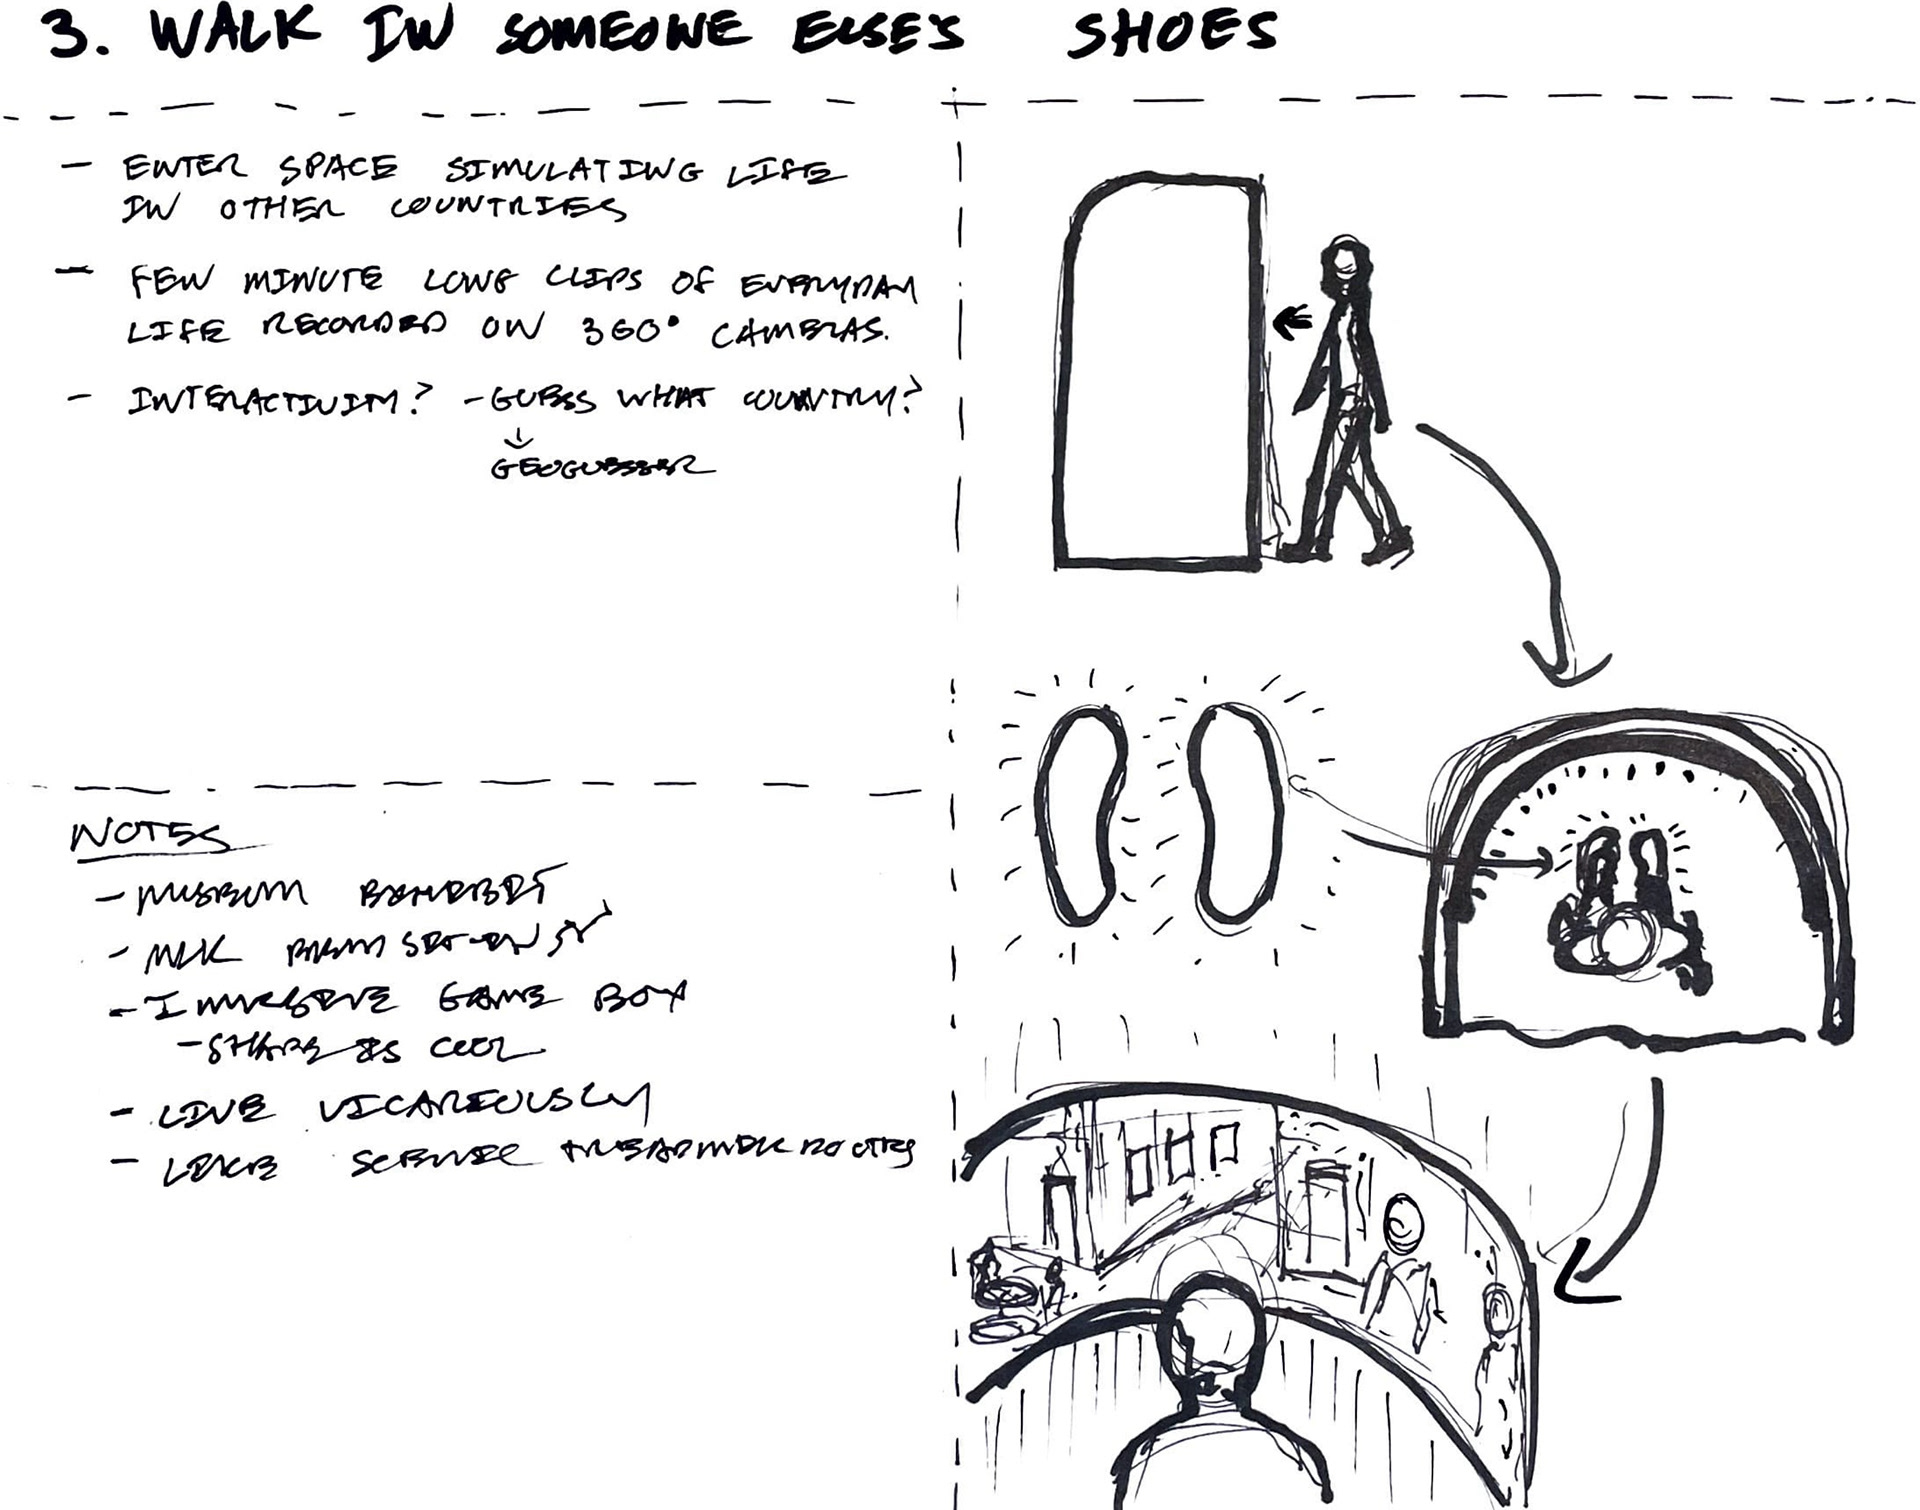 3. WALK IN SOMEONE ELSE'S SHOES
- ENTER SPACE SIMULATING LIFE
IN OTHER COUNTRIES
- FEW MINUTE LONG CLIPS OF EVERYDAY
LIFE RECORDED ON 360° CAMERAS.
- INTERACTIVITY? - GUESS WHAT COUNTRY?
GEOGUESSER
NOTES
- MUSEUM EXHIBIT
- MLK
- IMMERSIVE GAME BOX
- SHAPE IS COOL
- LIVE VICAREOUSLY
- LIKE